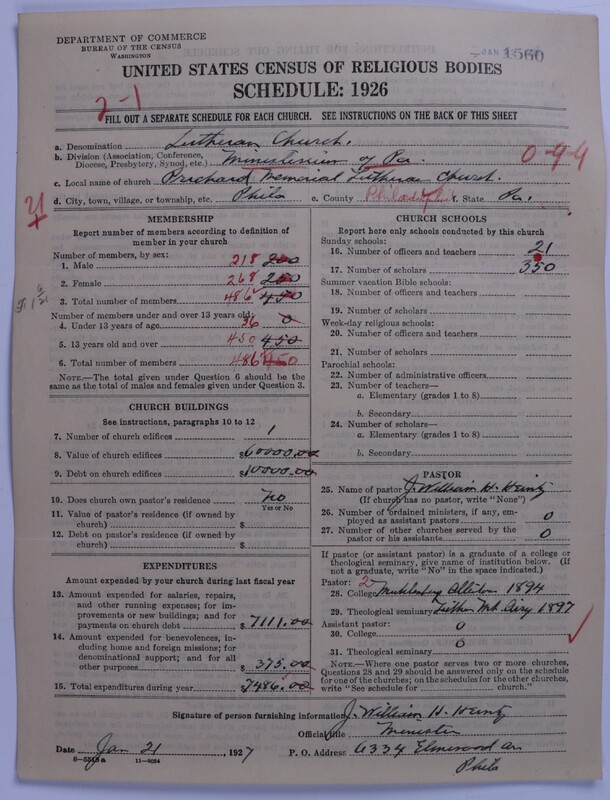 DEPARTMENT OF COMMERCE
BUREAU OF THE CENSUS
WASHINGTON
JAN
1560
UNITED STATES CENSUS OF RELIGIOUS BODIES
SCHEDULE: 1926
2-1
FILL OUT A SEPARATE SCHEDULE FOR EACH CHURCH. SEE INSTRUCTIONS ON THE BACK OF THIS SHEET
a. Denomination Lutheran Church.
b. Division (Association, Conference, Diocese, Presbytery, Synod, etc.) Ministerium of Pa. 0-9-4
c. Local name of church Prichard Memorial Lutheran Church.
d. City, town, village, or township, etc. Phila e. County Philadelphia f. State Pa.
MEMBERSHIP
Report number of members according to definition of
member in your church
Number of members, by sex:
1. Male 218 200
2. Female 268 250
3. Total number of members 486 450
Number of members under and over 13 years old:
4. Under 13 years of age 36 0
5. 13 years old and over 450 450
6. Total number of members 486 450
NOTE.—The total given under Question 6 should be
the same as the total of males and females given under Question 3.
CHURCH BUILDINGS
See instructions, paragraphs 10 to 12
7. Number of church edifices 1
8. Value of church edifices $60000.00
9. Debt on church edifices $10000.00
10. Does church own pastor's residence No
Yes or No
11. Value of pastor's residence (if owned by
church) $
12. Debt on pastor's residence (if owned by
church) $
EXPENDITURES
Amount expended by your church during last fiscal year
13. Amount expended for salaries, repairs,
and other running expenses; for im-
provements or new buildings; and for
payments on church debt $7111.00
14. Amount expended for benevolences, in-
cluding home and foreign missions; for
denominational support; and for all
other purposes $375.00
15. Total expenditures during year $7486.00
CHURCH SCHOOLS
Report here only schools conducted by this church
Sunday schools:
16. Number of officers and teachers 21
17. Number of scholars 350
Summer vacation Bible schools:
18. Number of officers and teachers
19. Number of scholars
Week-day religious schools:
20. Number of officers and teachers
21. Number of scholars
Parochial schools:
22. Number of administrative officers
23. Number of teachers—
a. Elementary (grades 1 to 8)
b. Secondary
24. Number of scholars—
a. Elementary (grades 1 to 8)
b. Secondary
PASTOR
25. Name of pastor J. William H. Heintz
(If church has no pastor, write "None")
26. Number of ordained ministers, if any, em-
ployed as assistant pastors 0
27. Number of other churches served by the
pastor or his assistants 0
If pastor (or assistant pastor) is a graduate of a college or
theological seminary, give name of institution below. (If
not a graduate, write "No" in the space indicated.)
Pastor: 2
28. College Muhlenberg 1894
29. Theological seminary Luthn Mt. Airy 1897
Assistant pastor:
30. College 0
31. Theological seminary 0
NOTE.—Where one pastor serves two or more churches,
Questions 28 and 29 should be answered only on the schedule
for one of the churches; on the schedules for the other churches,
write "See schedule for church."
Signature of person furnishing information J. William H. Heintz
Official title Minister
Date Jan 21, 1927 P. O. Address 6334 Elmwood Av
Phila
8—5518a 11—9024